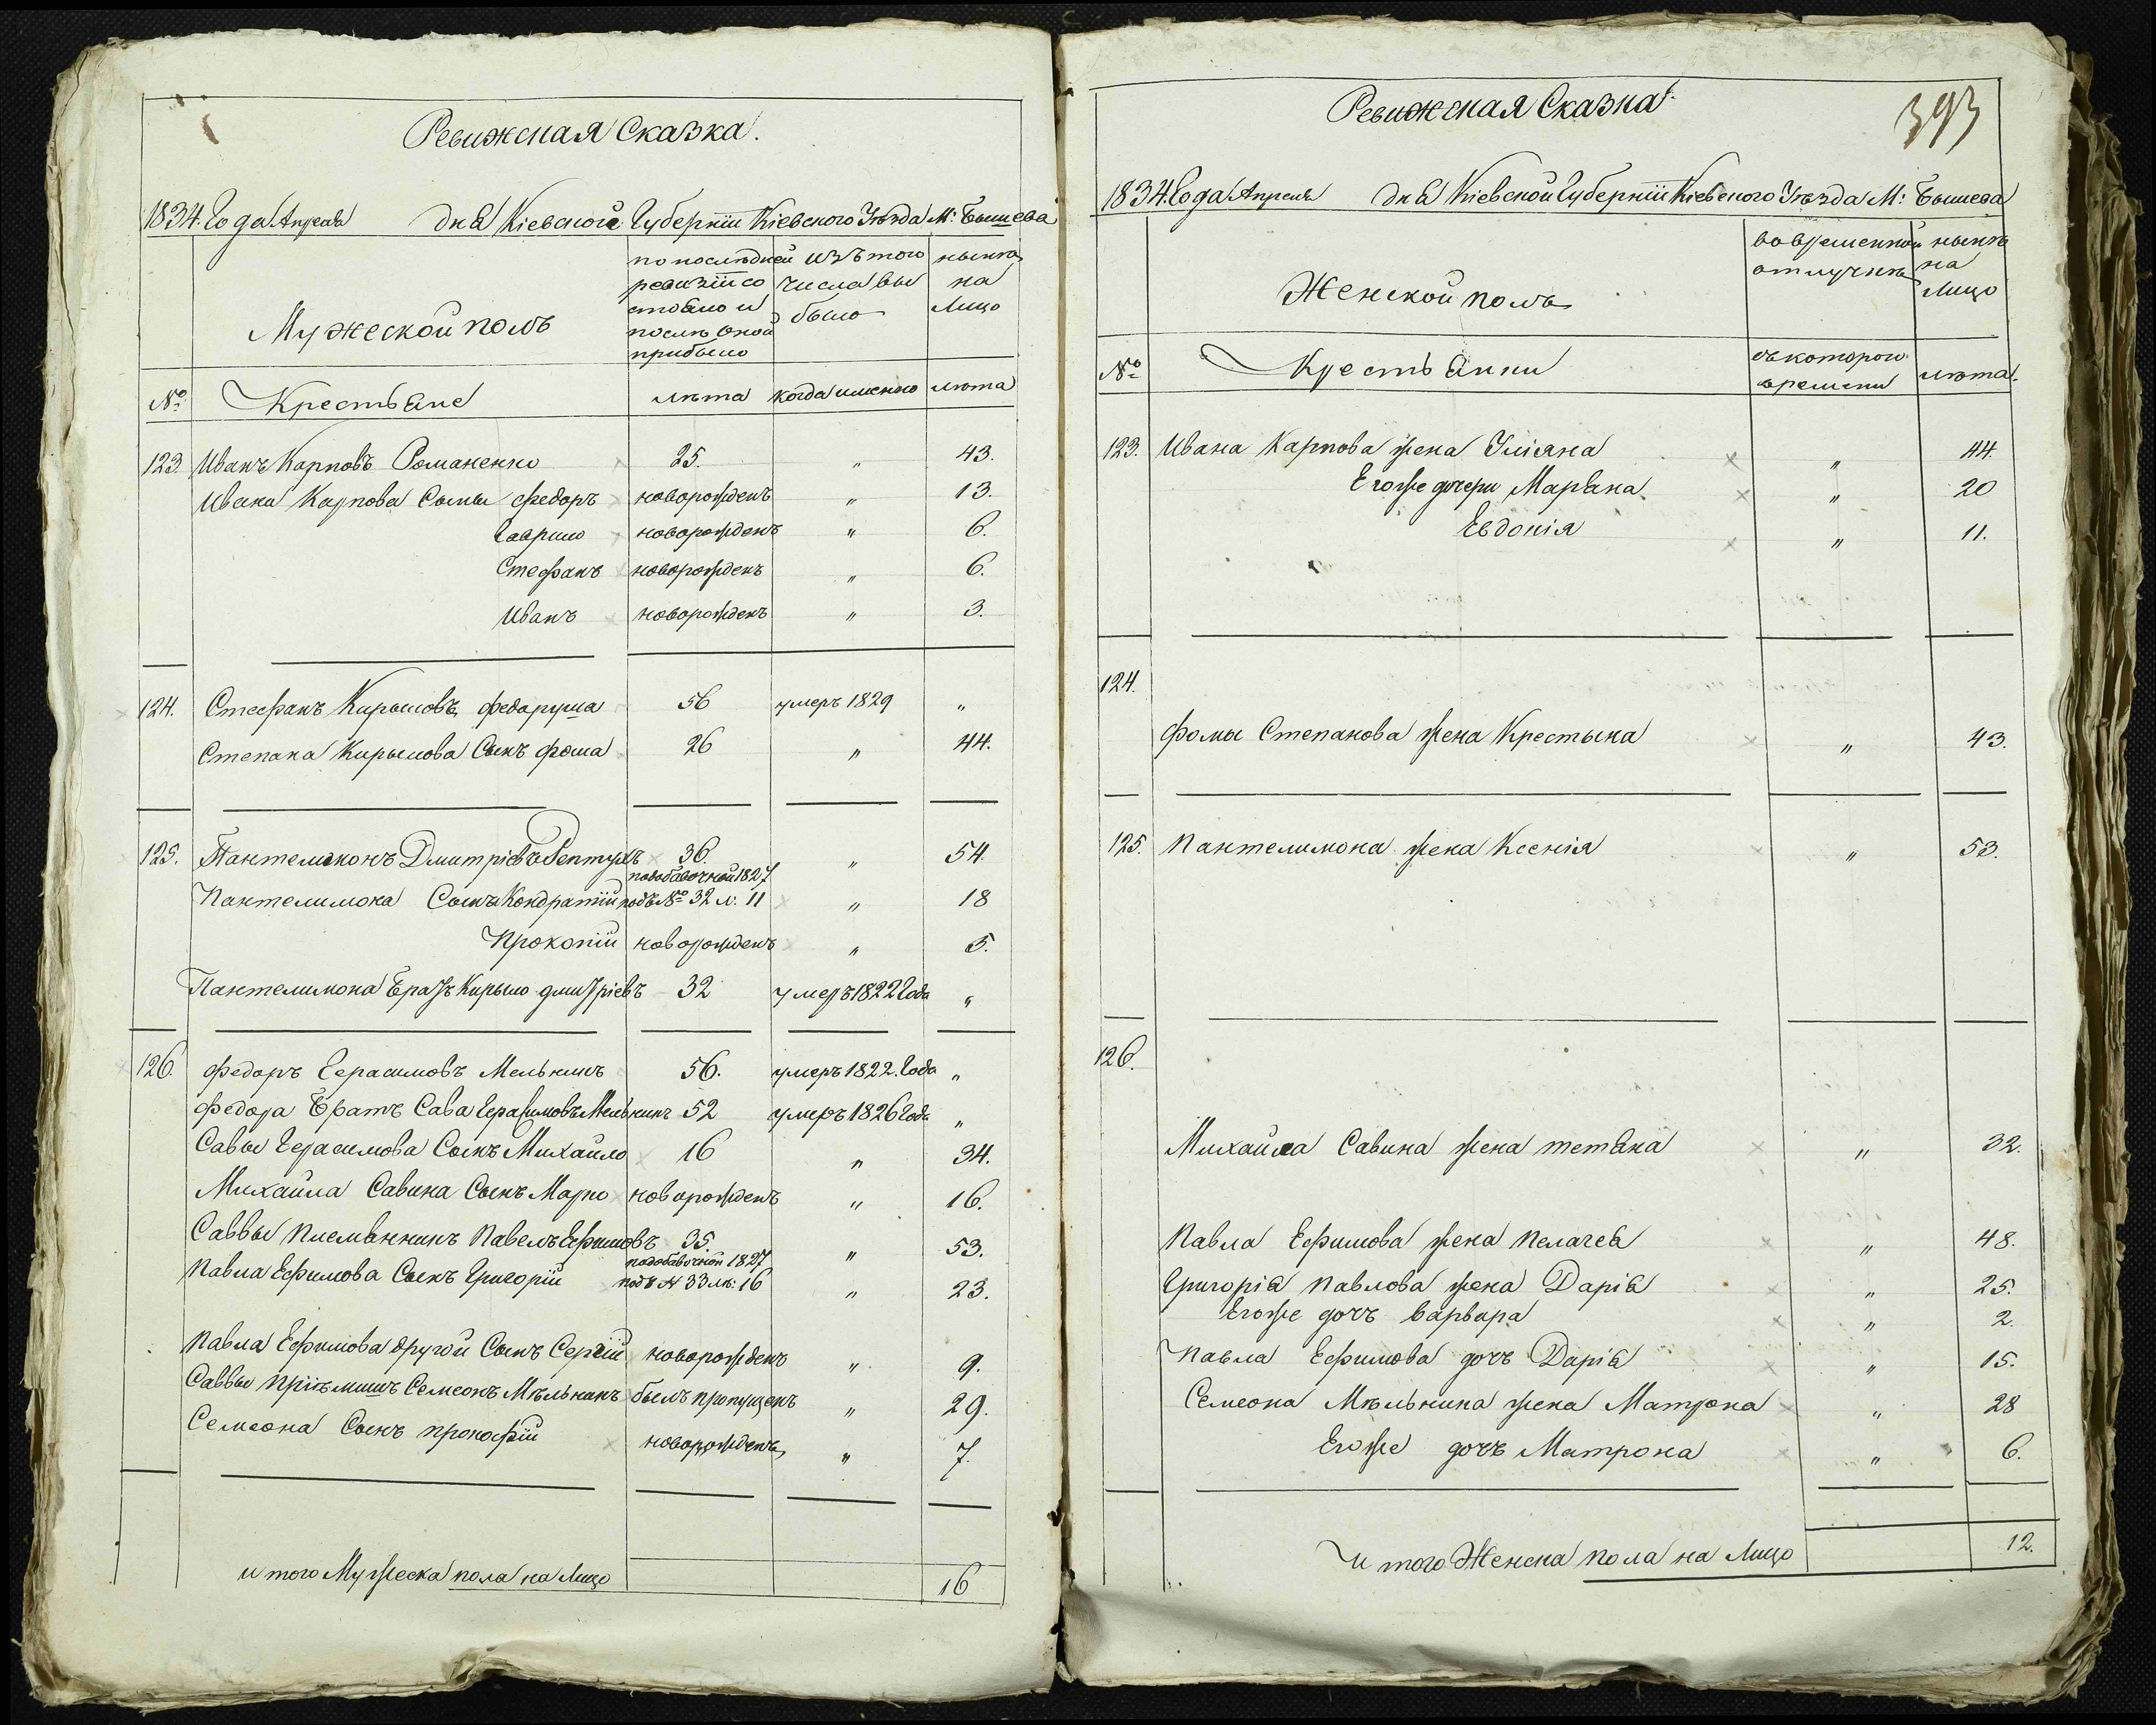 Ревижская Сказка.
1834. Года Апреля дня Кіевской Губерніи Кіевского Уѣзда М: Бышева
Мужеской полъ
по последней ревизіи состояло и послѣ оной прибыло
изъ того числа выбыло
нынѣ на Лицо
№ Крестьяне лѣта когда именно лѣта
123. Иванъ Карповъ Романенко 25. „ 43.
Ивана Карпова Сыны Федоръ новорожденъ „ 13.
Гаврило новорожденъ „ 6.
Стефанъ новорожденъ „ 6.
Иванъ новорожденъ „ 3.
124. Стефанъ Кирыловъ Федоруша 56 умеръ 1829 „
Степана Кирылова Сынъ Фома 26 „ 44.
125. Пантелимонъ Дмитріевъ Рептухъ 36. „ 54.
Пантелимона Сынъ Кондратій подобавочной 1827 подъ № 32 л. 11 „ 18
Прокопій новорожденъ „ 5.
Пантелимона Братъ Кирыло Дмитріевъ 32 умеръ 1822 Года „
126. Федоръ Герасимовъ Мельникъ 56. умеръ 1822. Года „
Федора Братъ Сава Герасимовъ Мельникъ 52 умеръ 1826 Года „
Савы Герасимова Сынъ Михайло 16 „ 34.
Михайла Савина Сынъ Марко новорожденъ „ 16.
Саввы племянникъ Павелъ Ефимовъ 35. „ 53.
Павла Ефимова Сынъ Григорій подобавочной 1827 подъ № 33 лѣ: 16 „ 23.
Павла Ефимова другой Сынъ Сергій новорожденъ „ 9.
Саввы пріѣмышъ Семеонъ Мѣльникъ былъ пропущенъ „ 29.
Семеона Сынъ Прокофій новорожденъ „ 7.
и того Мужеска пола на Лицо 16
Ревижская Сказка
393
1834. Года Апреля дня Кіевской Губерніи Кіевского Уѣзда М: Бышева
Женской полъ
во временной отлучкѣ
нынѣ на Лицо
№ Крестьянки съ которого времени лѣта.
123. Ивана Карпова жена Уліяна „ 44.
Егоже дочери Марьяна „ 20
Евдокія „ 11.
124.
Фомы Степанова жена Крестына „ 43.
125. Пантелимона жена Ксенія „ 53.
126.
Михайла Савина жена Тетяна „ 32.
Павла Ефимова жена Пелагея „ 48.
Григорія Павлова жена Дарія „ 25.
Егоже дочъ Варвара „ 2.
Павла Ефимова дочъ Дарія „ 15.
Семеона Мѣльника жена Матрона „ 28
Егоже дочъ Матрона „ 6.
и того Женска пола на Лицо 12.